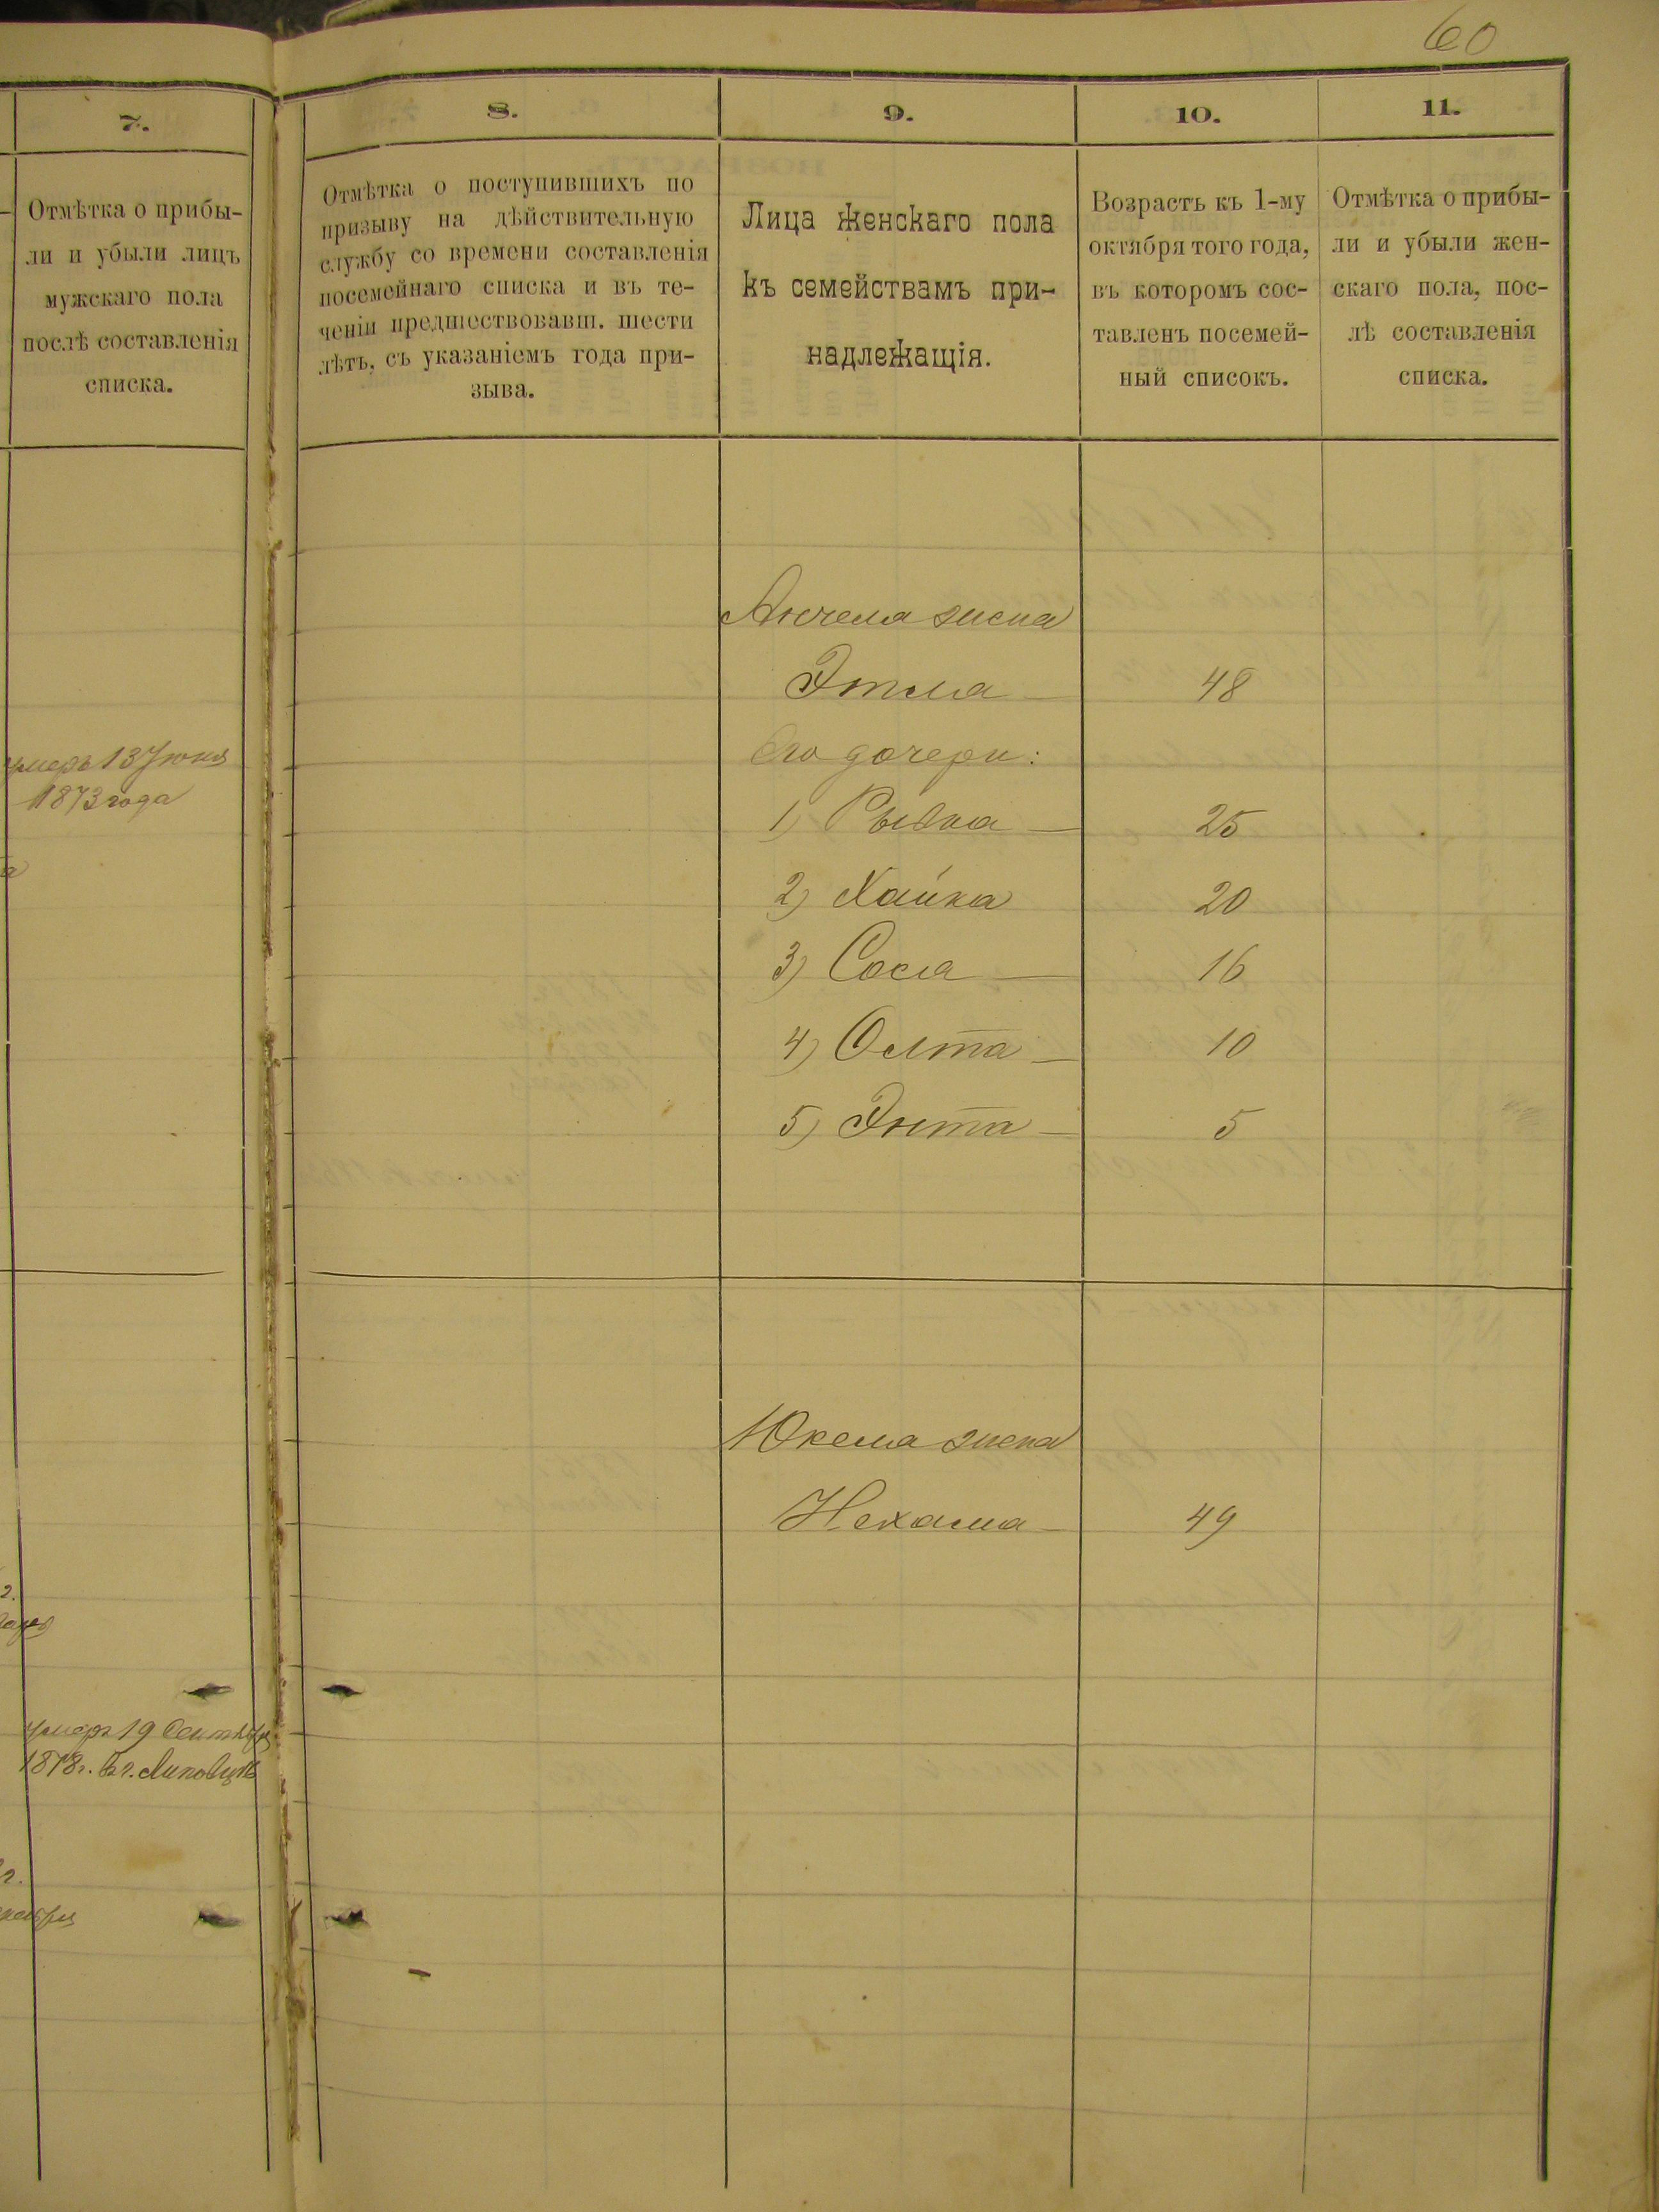 60
7.
Отмѣтка о прибы-
ли и убыли лицъ
мужскаго пола
послѣ составленія
списка.
умеръ 13 Іюня
1873 года
умеръ 19 Сентября
1878 г. в г. Липовцѣ
8.
Отмѣтка о поступившихъ по
призыву на дѣйствительную
службу со времени составленія
посемейнаго списка и въ те-
ченіи предшествовавш. шести
лѣтъ, съ указаніемъ года при-
зыва.
9.
Лица женскаго пола
къ семействамъ при-
надлежащія.
10.
Возрастъ къ 1-му
октября того года,
въ которомъ сос-
тавленъ посемей-
ный списокъ.
11.
Отмѣтка о прибы-
ли и убыли жен-
скаго пола, пос-
лѣ составленія
списка.
Анчеля жена
Этля 48
Его дочери:
1) Рывка 25
2) Хайка 20
3) Сося 16
4) Олта 10
5) Энта 5
Юкеля жена
Нехама 49